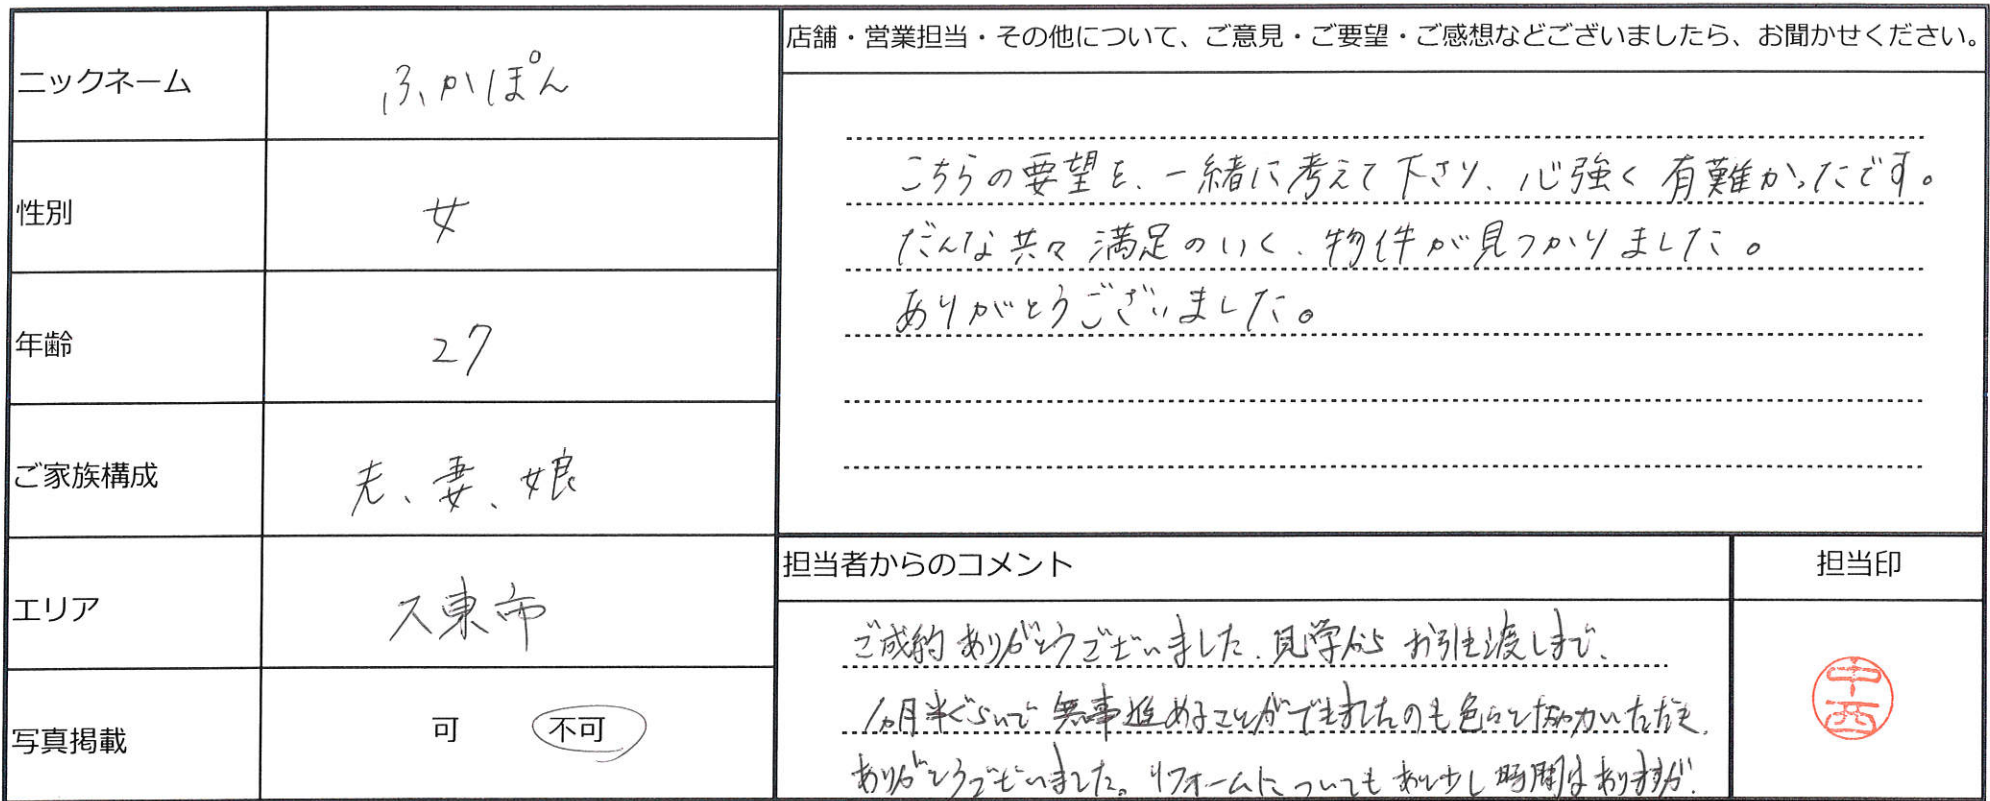 ニックネーム
ふかぽん
性別
女
年齢
27
ご家族構成
夫、妻、娘
エリア
大東市
写真掲載
可 不可
店舗・営業担当・その他について、ご意見・ご要望・ご感想などございましたら、お聞かせください。
こちらの要望を、一緒に考えて下さり、心強く有難かったです。
だんな共々満足のいく、物件が見つかりました。
ありがとうございました。
担当者からのコメント
ご成約ありがとうございました。見学からお引き渡しまで、
1ヵ月半ぐらいで無事進めることができましたのも色々と協力いただき、
ありがとうございました。リフォームについてもあと少し時間はありますが、
担当印
中西